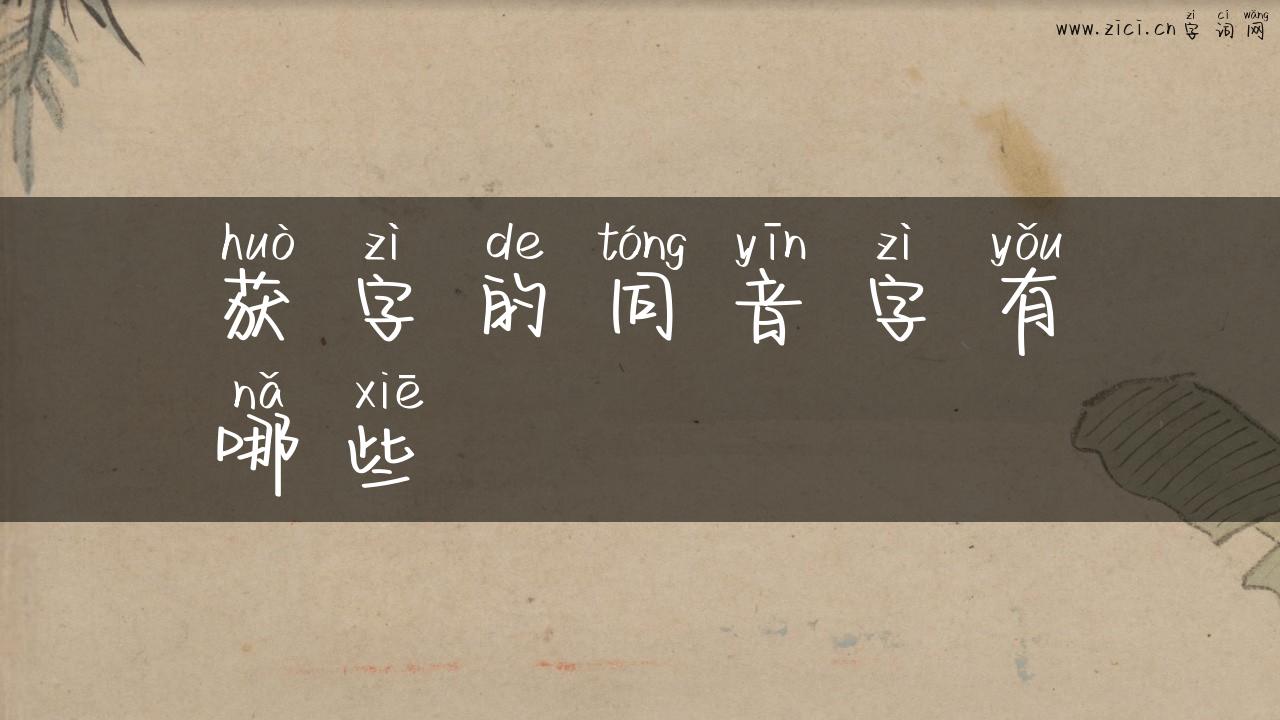 zì cí wǎng
www.zici.cn 字 词 网
huò zì de tóng yīn zì yǒu
获 字 的 同 音 字 有
nǎ xiē
哪 些